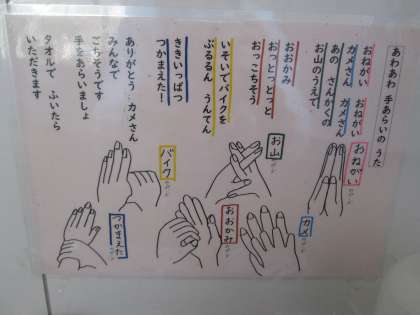 あわあわ 手あらいの うた
おねがい おねがい おねがい
カメさん カメさん
あの さんかくの
お山のうえで
おおかみ
おっとっとっと
おっこちそう
いそいでバイクを
ぶるるん うんてん
ききいっぱつ
つかまえた!
ありがとう カメさん
みんなで
ごちそうです
手をあらいましょ
タオルで ふいたら
いただきます
お山
バイク
カメ
おおかみ
つかまえた